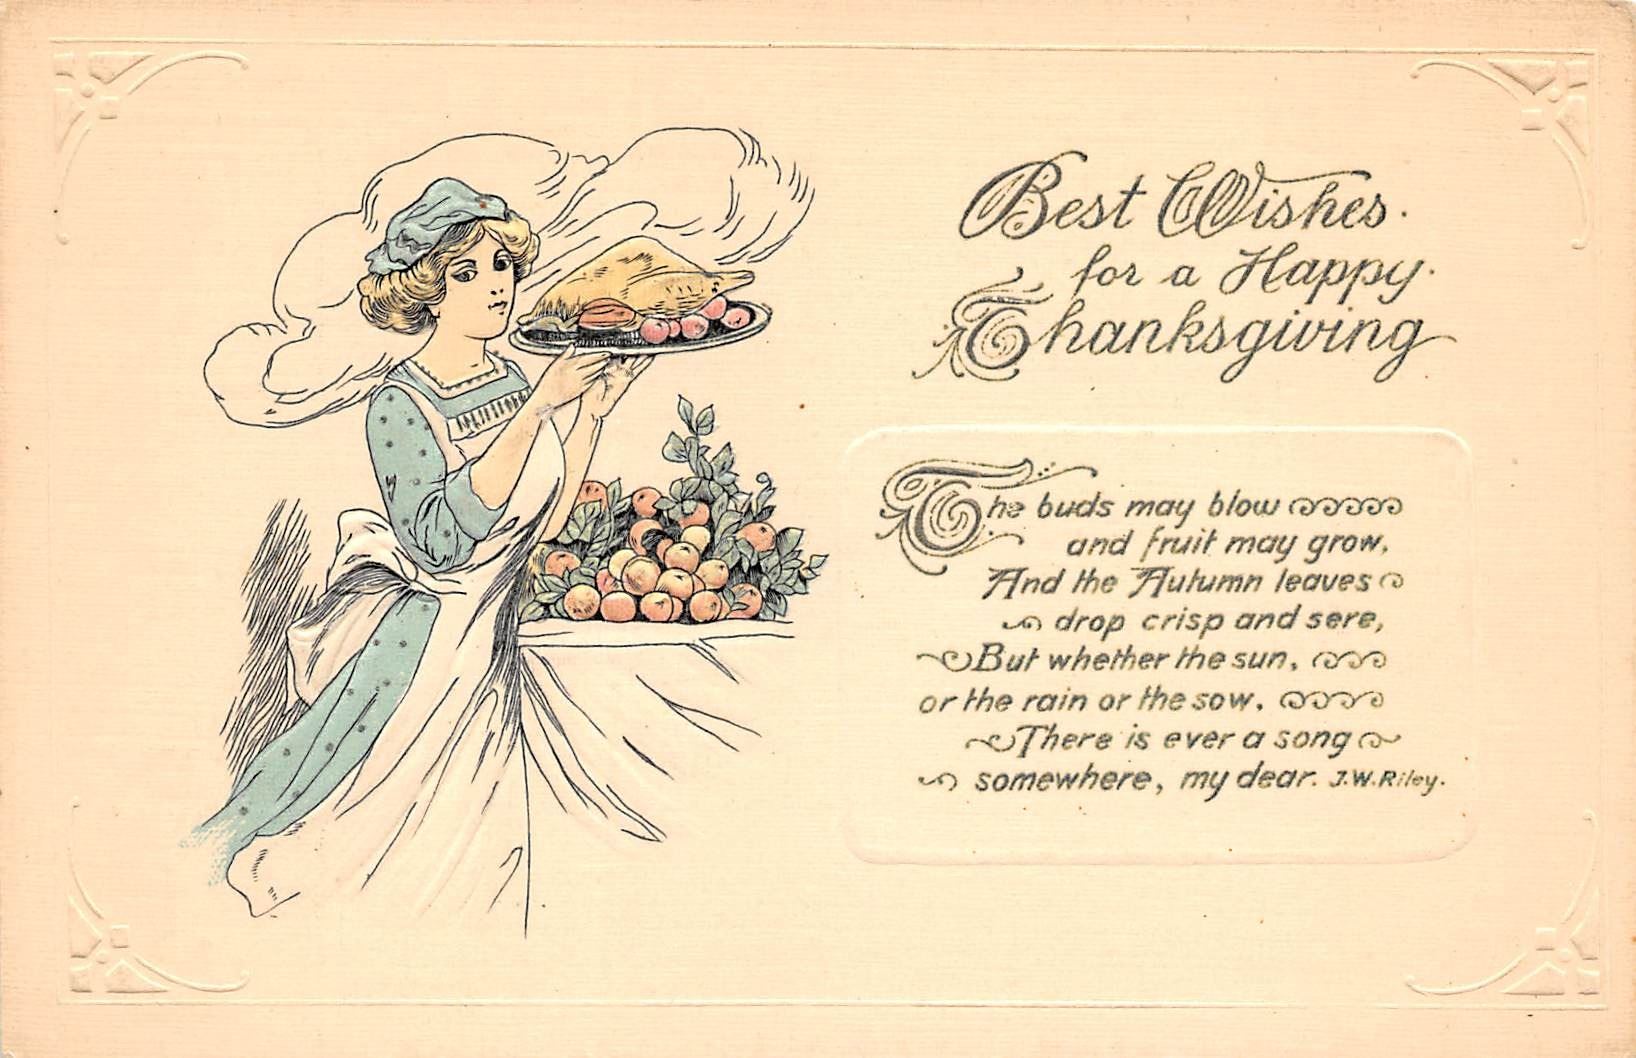 Best Wishes.
for a Happy.
Thanksgiving
The buds may blow
and fruit may grow,
And the Autumn leaves
drop crisp and sere,
But whether the sun,
or the rain or the sow.
There is ever a song
somewhere, my dear. J.W.Riley.